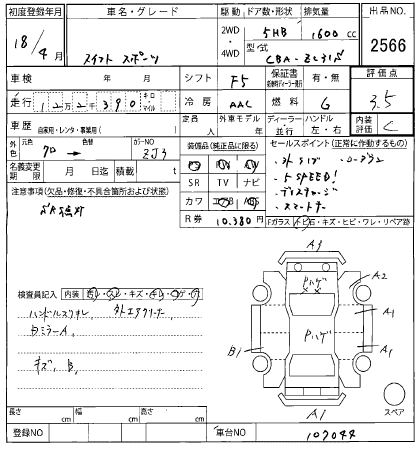 初度登録年月 車名・グレード 駆動 ドア数・形状 排気量 出品NO.
18/4月 スイフト スポーツ 2WD・4WD 5HB 1600cc 2566
型式 CBA-ZC31S
車検 年 月 シフト F5 保証書 有・無 評価点 3.5
走行 12万2千390 キロ マイル 冷房 AAC 燃料 G
車歴 自家用・レンタ・事業用( ) 定員 人 外車モデル 年 ディーラー・並行 ハンドル 左・右 内装評価 C
外色 元色 クロ → 色替 カラーNO ZJ3 装備品(純正品に限る) セールスポイント(正常に作動するもの)
名義変更期限 月 日迄 積載量 t
SR TV ナビ
5SPEED!
カワ
R券 10,380円
スマートキー
注意事項(欠品・修復・不具合箇所および状態)
Fガラス トビ石・キズ・ヒビ・ワレ・リペア跡
検査員記入 内装
ハンドルスリキレ 外エアクリーナー
Dミラー A
キズ、B、
A3
Pハゲ
A2
A1
Pハゲ
B1
A1
A1
スペア
長さ cm 幅 cm 高さ cm
登録NO 車台NO 107044